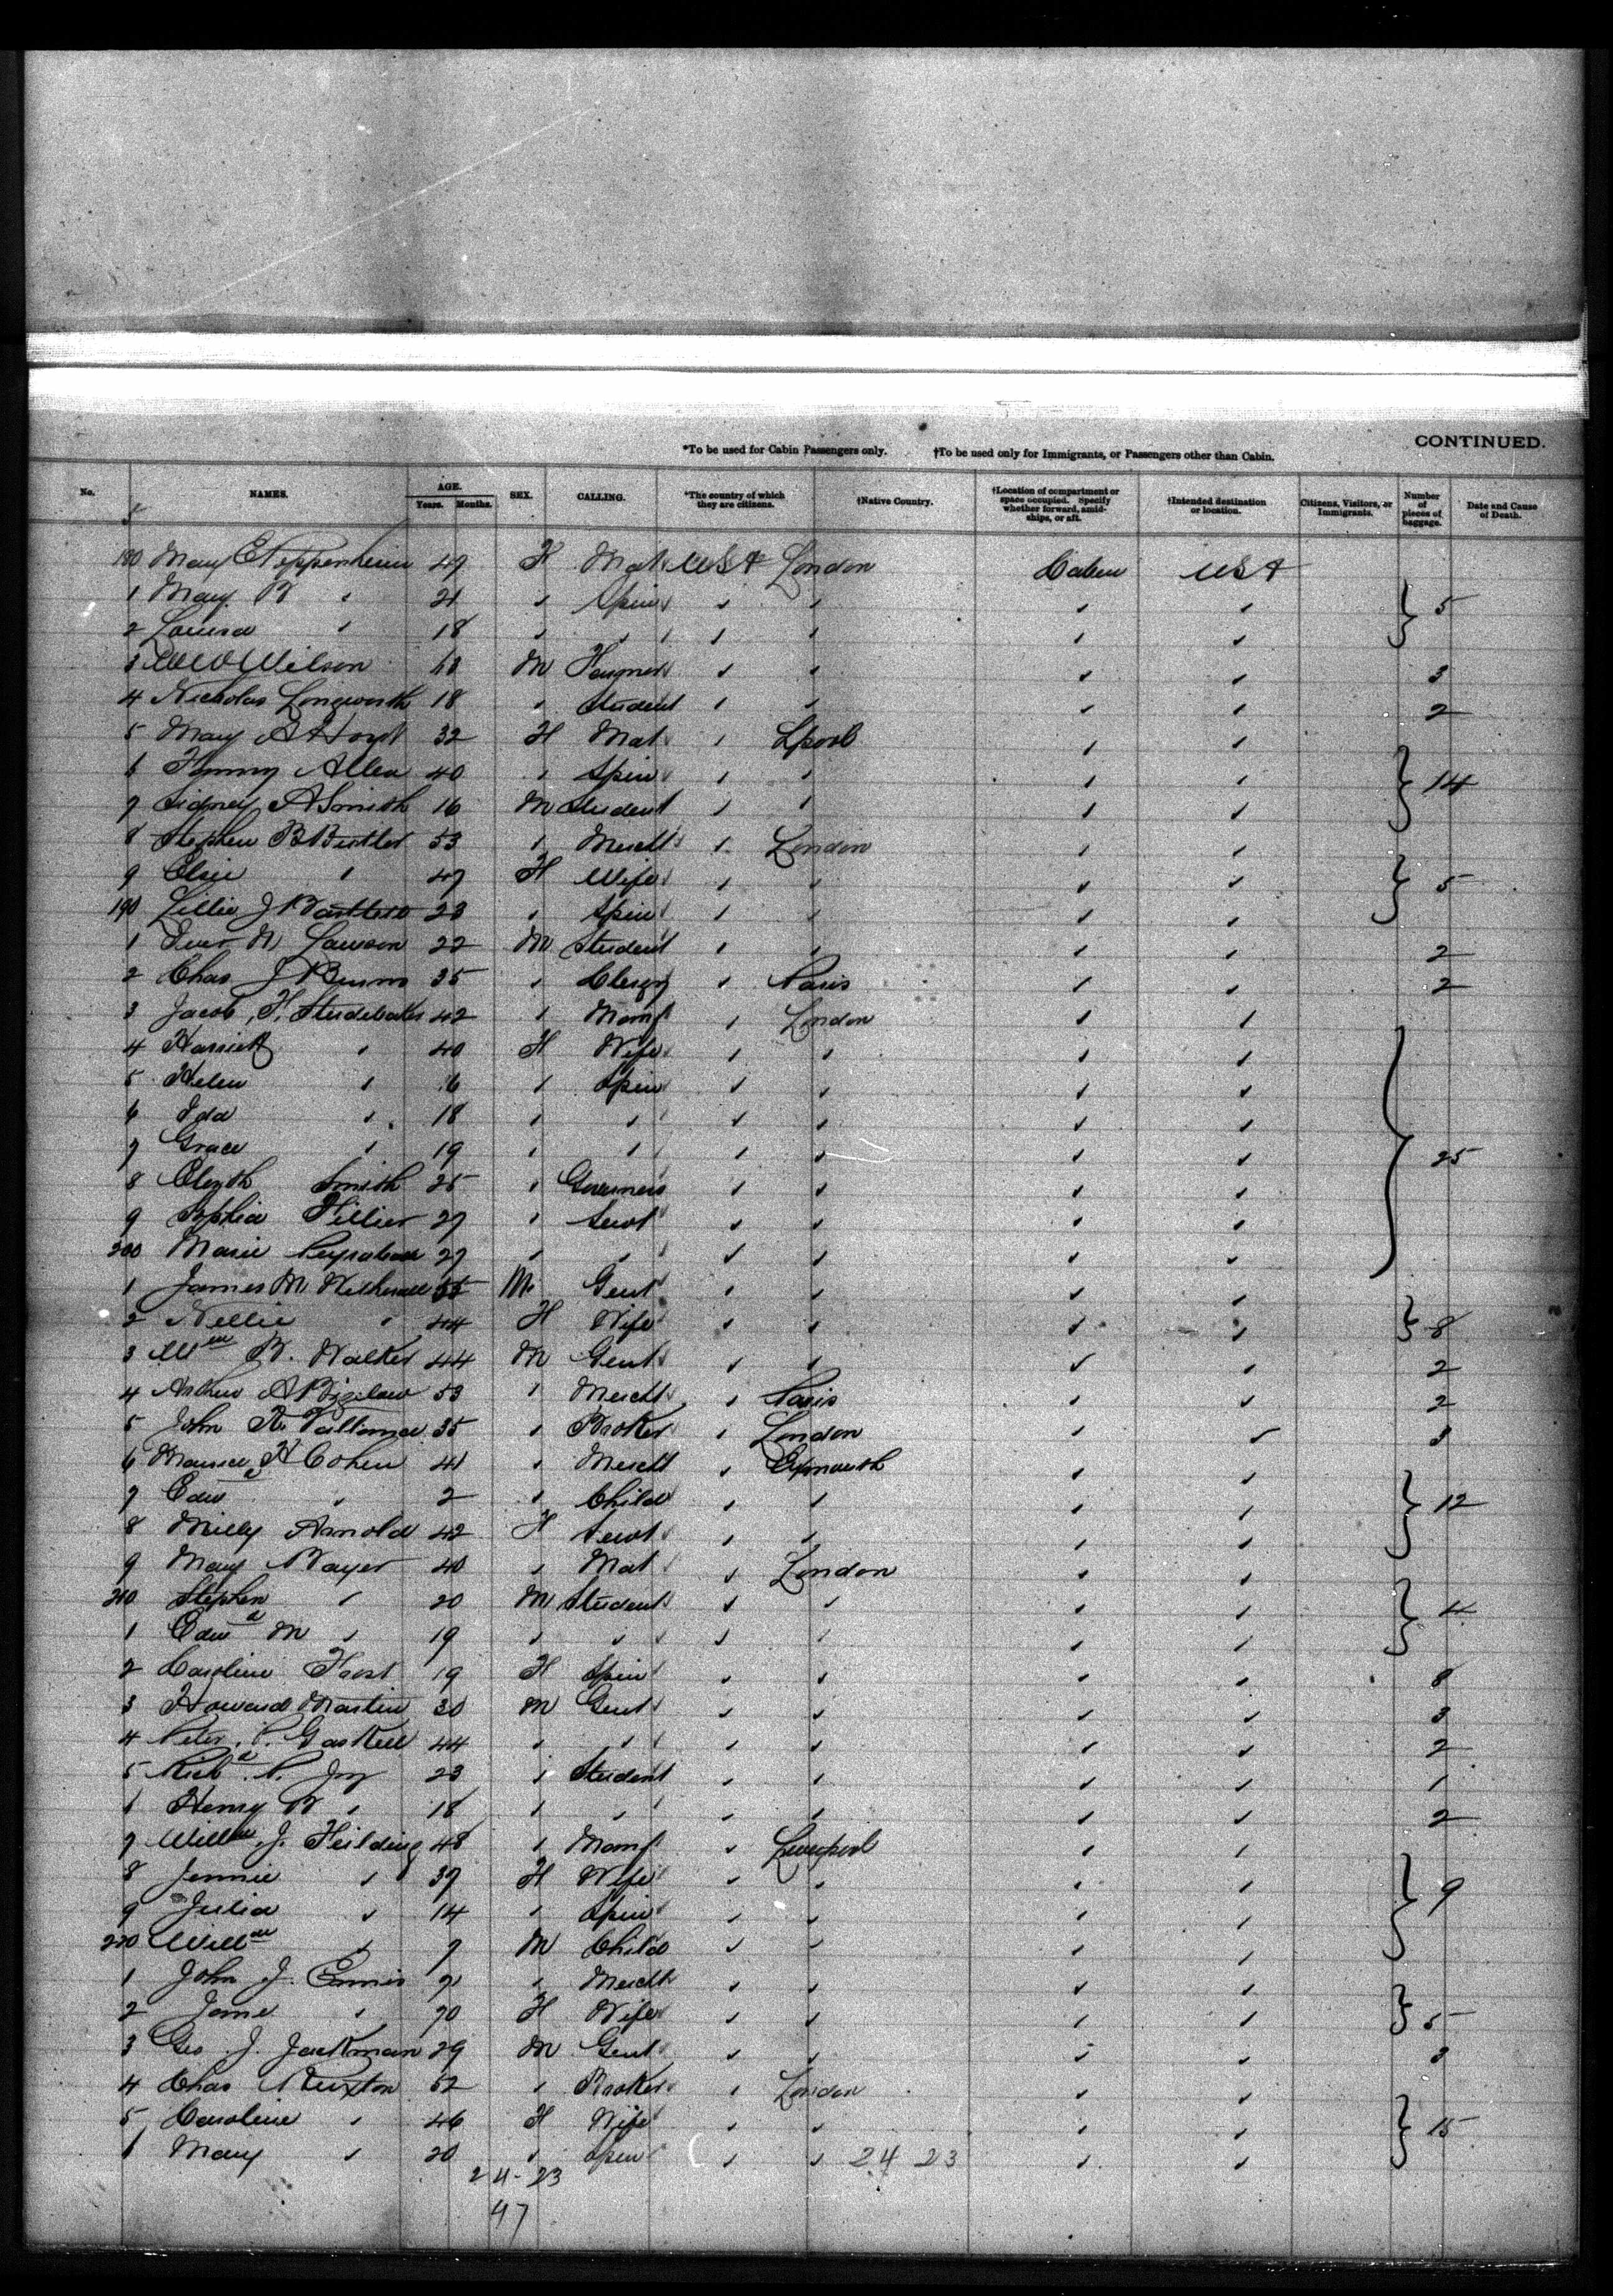 CONTINUED.
*To be used for Cabin Passengers only. †To be used only for Immigrants, or Passengers other than Cabin.
No. NAMES. AGE. Years. Months. SEX. CALLING. *The country of which they are citizens. †Native Country. †Location of compartment or space occupied. Specify whether forward, amidships, or aft. †Intended destination or location. Citizens, Visitors, or Immigrants. Number of pieces of baggage. Date and Cause of Death.
180 Mary E Peppenheim 49 F Mat USA London Cabin USA
1 Mary " 21 " Spin " " " " 5
2 Louisa " 18 " " " " " "
3 Wilson 63 M " " " " 3
4 Nicholas Longworth 18 " Student " " " " 2
5 Mary A Hoyt 32 F Mat " Lpool " "
6 Fanny Allen 40 " Spin " " " " 14
7 Sidney A Smith 16 M Student " " " "
8 Stephen B Butler 53 " Mercht " London " "
9 Elsie " 47 F Wife " " " " 5
190 Lillie J Bartlett 23 " Spin " " " "
1 N Lawson 22 M Student " " " " 2
2 Chas J Burns 35 " Clergy " Paris " " 2
3 Jacob F. Studebaker 42 " Manf " London " "
4 Harriet " 40 F Wife " " " "
5 Helen " 16 " Spin " " " "
6 Ida " 18 " " " " " "
7 Grace " 19 " " " " " " 25
8 Elizth Smith 25 " Governess " " " "
9 Sophia Hillier 27 " Servt " " " "
200 Marie 27 " " " " " "
1 James M. 55 M Gent " " " "
2 Nellie " 44 F Wife " " " " 8
3 Wm B. Walker 44 M Gent " " " " 2
4 A Bigelow 53 " Mercht " Paris " " 2
5 John A. 35 " Broker " London " " 3
6 Maurice H Cohen 41 " Mercht " Exmouth " "
7 Edwd " 2 " Child " " " " 12
8 Milly Arnold 42 F Servt " " " "
9 Mary Bayer 40 " Mat " London " "
210 Stephen " 20 M Student " " " " 4
1 Edwd M " 19 " " " " " "
2 Caroline Frost 19 F Spin " " " " 8
3 Howard Martin 30 M Gent " " " " 3
4 Peter P. Gaskell 44 " " " " " " 2
5 Richd P. Joy 23 " Student " " " " 1
6 Henry B " 18 " " " " " " 2
7 Willm J. Feilding 48 " Manf " Liverpool " "
8 Jennie " 37 F Wife " " " " 9
9 Julia " 14 " Spin " " " "
220 Willm " 9 M Child " " " "
1 John J. Ennis 71 " Mercht " " " "
2 Jane " 70 F Wife " " " " 5
3 Geo. J. Jackman 29 M Gent " " " " 3
4 Chas Buxton 52 " Broker " London " "
5 Caroline " 46 F Wife " " " " 15
6 Mary " 20 " Spin " " 24 23 " "
24-23
47